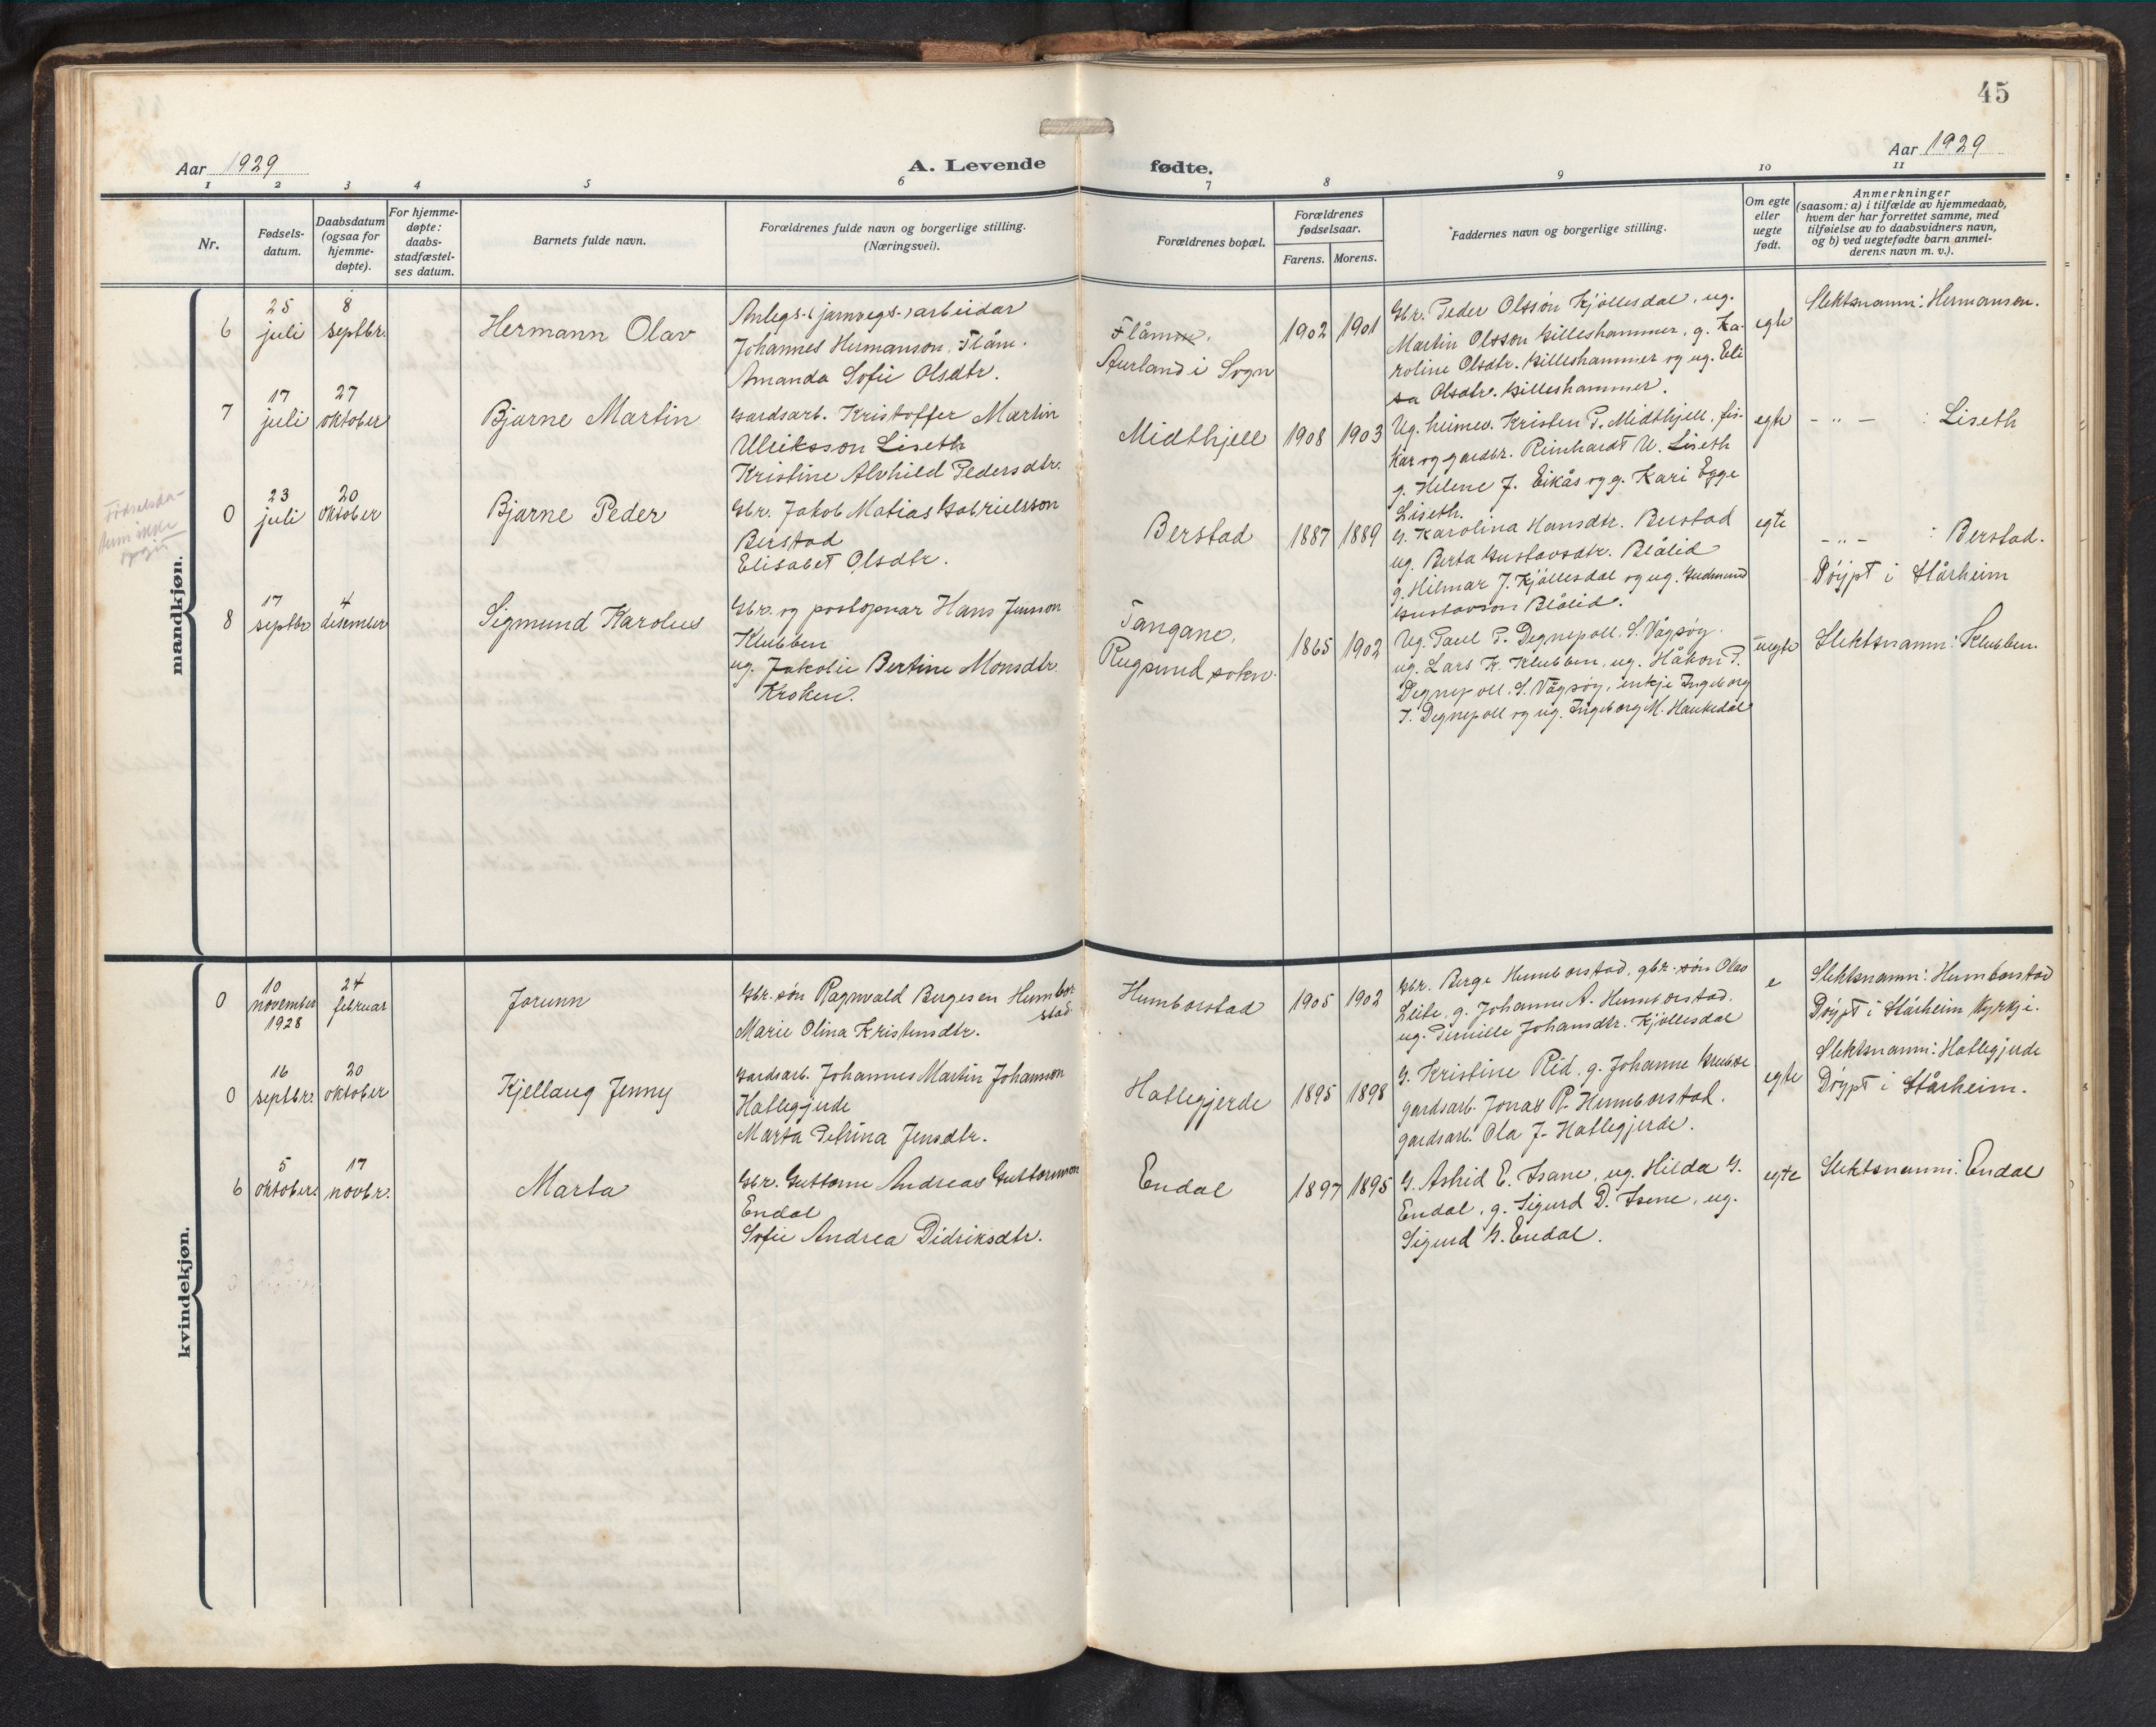 45
Aar 1929
A. Levende fødte.
Aar 1929
1 2 3 4 5 6 7 8 9 10 11
Nr.
Fødsels-
datum.
Daabsdatum
(ogsaa for
hjemme-
døpte).
For hjemme-
døpte:
daabs-
stadfæstel-
ses datum.
Barnets fulde navn.
Forældrenes fulde navn og borgerlige stilling.
(Næringsvei).
Forældrenes bopæl.
Forældrenes
fødselsaar.
Farens. Morens.
Faddernes navn og borgerlige stilling.
Om egte
eller
uegte
født.
Anmerkninger
(saasom: a) i tilfælde av hjemmedaab,
hvem der har forrettet samme, med
tilføielse av to daabsvidners navn,
og b) ved uegtefødte barn anmel-
derens navn m. v.).
mandkjøn.
6
25
juli
8
septbr.
Hermann Olav
Anlegs-(jarnvegs-)arbeidar
Johannes Hermanson, Flåm.
Amanda Sofie Olsdtr.
Flåm,
Aurland i Sogn
1902 1901
Gbr. Peder Olsson Kjöllesdal, ug.
Martin Olsson Gilleshammer, g. Ka-
roline Olsdtr. Gilleshammer og ug. Eli
sa Olsdtr. Gilleshammer.
egte
Slektsnamn: Hermanson.
7
17
juli
27
oktober
Bjarne Martin
Gardsarb. Kristoffer Martin
Ulriksson Liseth
Kristine Alvhild Pedersdtr.
Midthjell
1908 1903
Ug. heimev. Kristen P. Midthjell, fis-
kar og gardbr. Reinhardt U. Liseth
g. Helene J. Eikås og g. Kari Egge
Liseth.
egte
- " - : Liseth
Fødselsda-
tum ikke
opgit
0
23
juli
20
oktober
Bjarne Peder
Gbr. Jakob Matias Gabrielsson
Berstad
Elisabet Olsdtr.
Berstad
1887 1889
G. Karolina Hansdtr. Berstad
ug. Berta Gustavsdtr. Blålid
g. Hilmar J. Kjöllesdal og ug. Gudmund
Gustavson Blålid.
egte
- " - : Berstad.
Döypt i Stårheim
8
17
septbr
4
desember
Sigmund Karolus
Gbr. og postopnar Hans Jenson
Klubben
ug. Jakolie Bertine Monsdtr.
Kroken.
Tangane,
Rugsund sokn.
1865 1902
Ug. Paul P. Degnepoll. S. Vågsøy.
ug. Lars K. Klubben, ug. Håkon P.
Degnepoll, S. Vågsøy, enkje Ingeborg
T. Degnepoll og ug. Ingeborg M. Haukedal
uegte
Slektsnamn: Klubben.
kvindekjøn.
0
10
november
1928
24
februar
Jorunn
Gbr. søn Ragnvald Bergesen Humbor
stad
Marie Olina Kristensdtr.
Humborstad
1905 1902
Gbr. Berge Humborstad, gbr. søn Olav
Leite, g. Johanne A. Humborstad,
ug. Pernille Johansdtr. Kjöllesdal
e
Slektsnamn: Humborstad
Döypt i Stårheim Kyrkje.
0
16
septbr.
20
oktober
Kjellaug Jenny
Gardsarb. Johannes Martin Johanson
Hatlegjerde
Marta Petrina Jensdtr.
Hatlegjerde
1895 1898
G. Kristine Rid, g. Johanne
gardsarb. Jonas R. Humborstad.
gardsarb. Ola J. Hatlegjerde.
egte
Slektsnamn: Hatlegjerde
Döypt i Stårheim.
6
5
oktober.
17
novbr.
Marta
Gbr. Guttorm Andreas Guttormson
Endal
Sofie Andrea Didriksdtr.
Endal
1897 1895
G. Astrid E. Isane, ug. Hilda G.
Endal, g. Sigurd D. Isene, ug.
Sigurd G. Endal.
egte
Slektsnamn: Endal